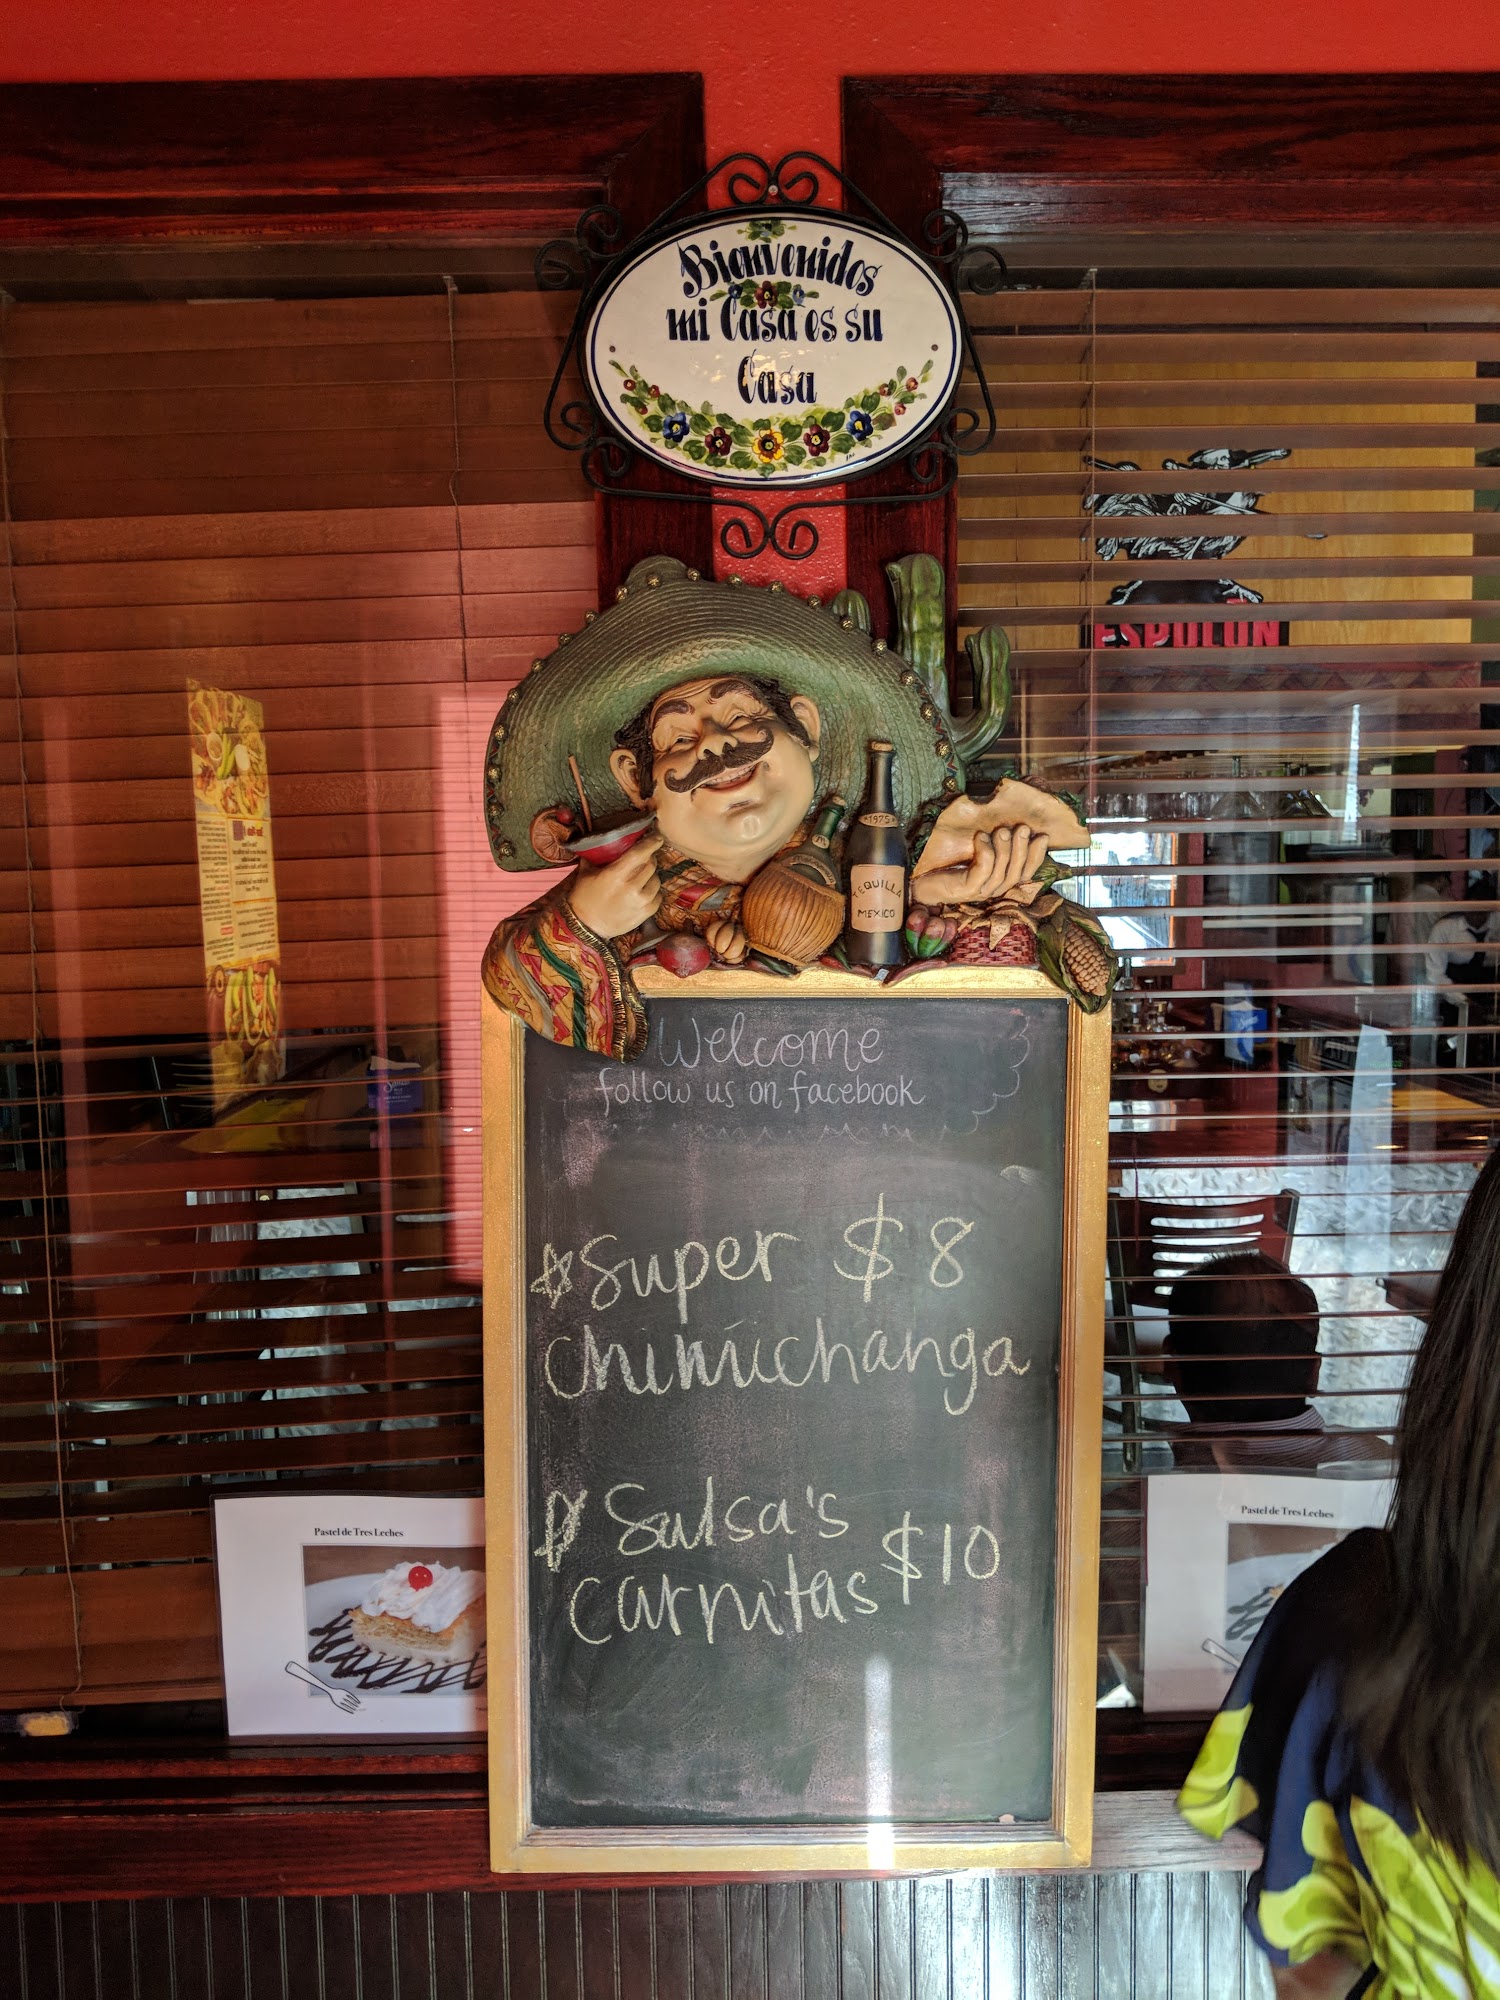 Bienvenidos
mi Casa es su
Casa
ESPOLON
1975
TEQUILLA
MEXICO
Welcome
follow us on facebook
Super $8
Chimichanga
Salsa's
Carnitas $10
Pastel de Tres Leches
Pastel de Tres Leches